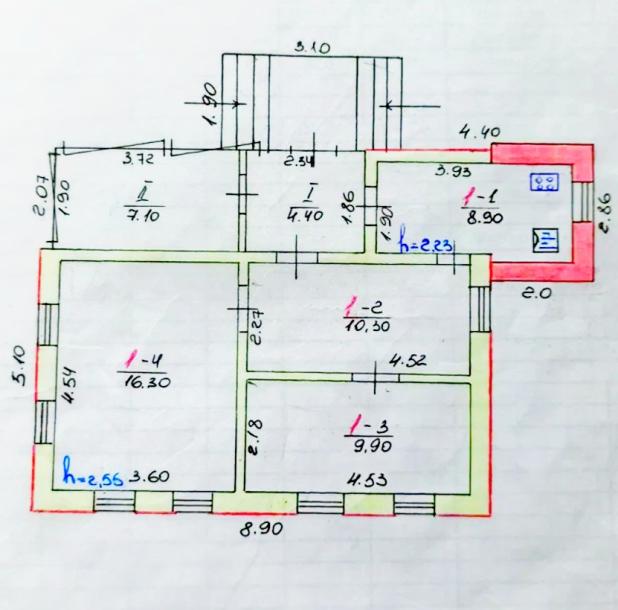 3.10
1.90
4.40
3.72
2.34
3.93
2.07
1.90
II
7.10
I
4.40
1.86
1.90
1-1
8.90
2.86
h=2,23
2.0
1-2
10,30
2.27
4.52
5.10
4.54
1-4
16.30
2.18
1-3
9,90
h=2,56
3.60
4.53
8.90